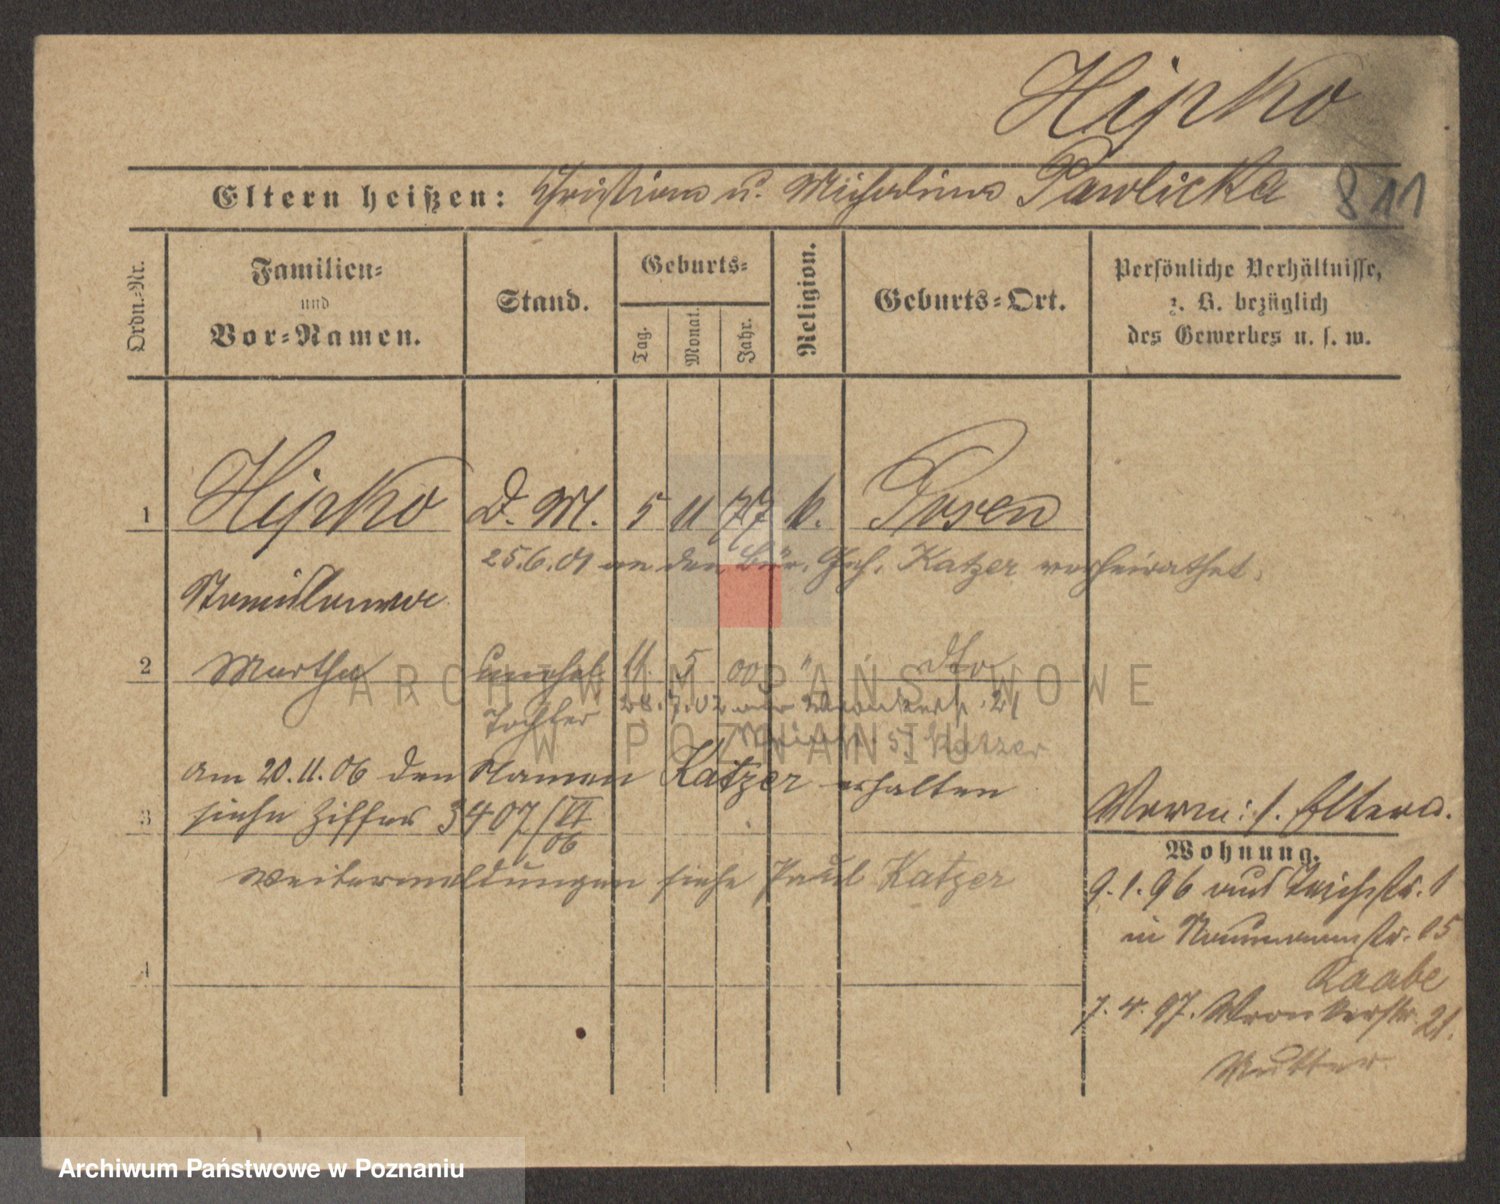 Hipko
Eltern heißen: Christian u. Michalina Pawlicka
811
Ordn.-Nr.
Familien-
und
Vor-Namen.
Stand.
Geburts-
Tag.
Monat.
Jahr.
Religion.
Geburts-Ort.
Persönliche Verhältnisse,
z. B. bezüglich
des Gewerbes u. s. w.
1 Hipko D. M. 5 11 77 k. Posen
25.6.01 an den Bür. Geh. Katzer verheirathet.
Stanislawa
2 Martha unehel. 11. 5 00 " dto
Tochter 28.7.02 Wronkerstr. 21
Katzer
am 20.11.06 den Namen Katzer erhalten
3 siehe Ziffer 3407/VI
06
Weitermeldungen siehe Paul Katzer
4
Vorm: s. Eltern.
Wohnung.
9.1.96 aus Teichstr. 1
in Naumannstr. 15
Raabe
7.4.97. Wronkerstr. 21.
Mutter
ARCHIWUM PAŃSTWOWE
W POZNANIU
Archiwum Państwowe w Poznaniu